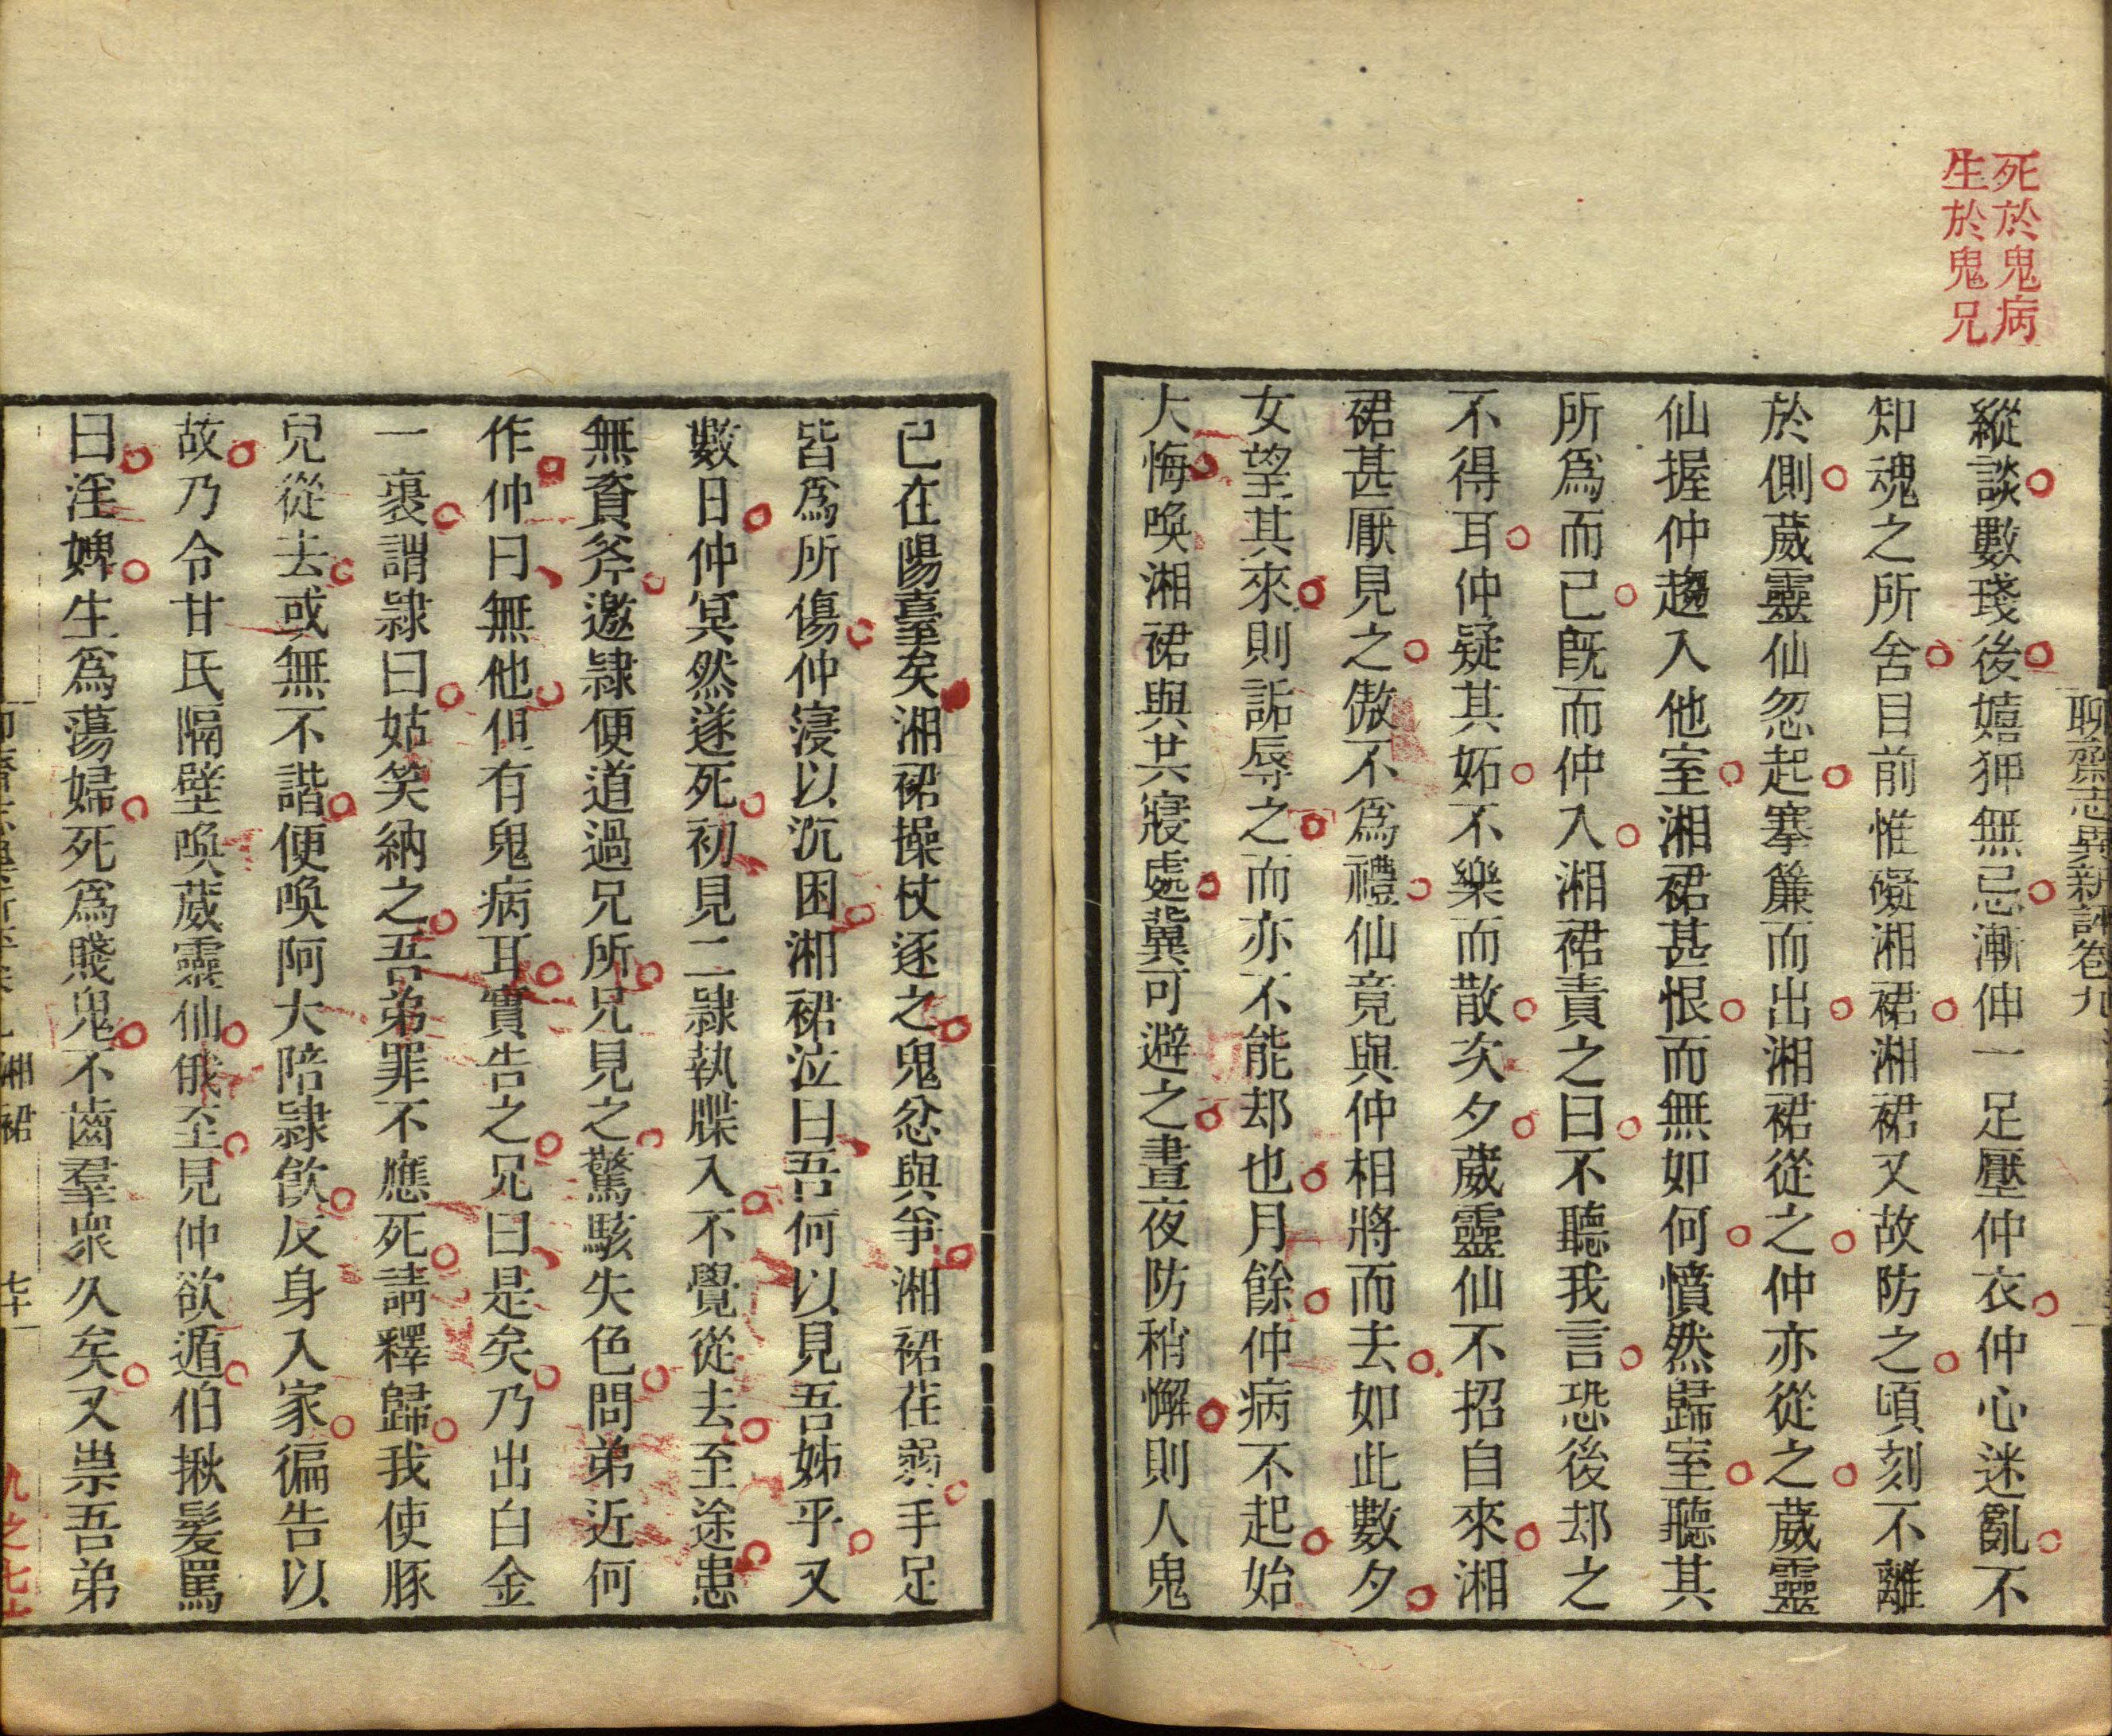 死於鬼病
生於鬼兄
聊齋志異新評卷九
縱談數琖後嬉狎無忌漸伸一足壓仲衣仲心迷亂不
知魂之所舍目前惟礙湘裙湘裙又故防之頃刻不離
於側葳靈仙忽起搴簾而出湘裙從之仲亦從之葳靈
仙握仲趨入他室湘裙甚恨而無如何憤然歸室聽其
所爲而已既而仲入湘裙責之曰不聽我言恐後却之
不得耳仲疑其妬不樂而散次夕葳靈仙不招自來湘
裙甚厭見之傲不爲禮仙竟與仲相將而去如此數夕
女望其來則詬辱之而亦不能却也月餘仲病不起始
大悔喚湘裙與共寢處冀可避之晝夜防稍懈則人鬼
已在陽臺矣湘裙操杖逐之鬼忿與爭湘裙荏弱手足
皆爲所傷仲寖以沉困湘裙泣曰吾何以見吾姊乎又
數日仲冥然遂死初見二隸執牒入不覺從去至途患
無資斧邀隸便道過兄所兄見之驚駭失色問弟近何
作仲曰無他但有鬼病耳實告之兄曰是矣乃出白金
一裹謂隸曰姑笑納之吾弟罪不應死請釋歸我使豚
兒從去或無不諧便喚阿大陪隸飮反身入家徧告以
故乃令甘氏隔壁喚葳靈仙俄至見仲欲遁伯揪髮罵
曰淫婢生爲蕩婦死爲賤鬼不齒羣衆久矣又祟吾弟
湘裙
七十一